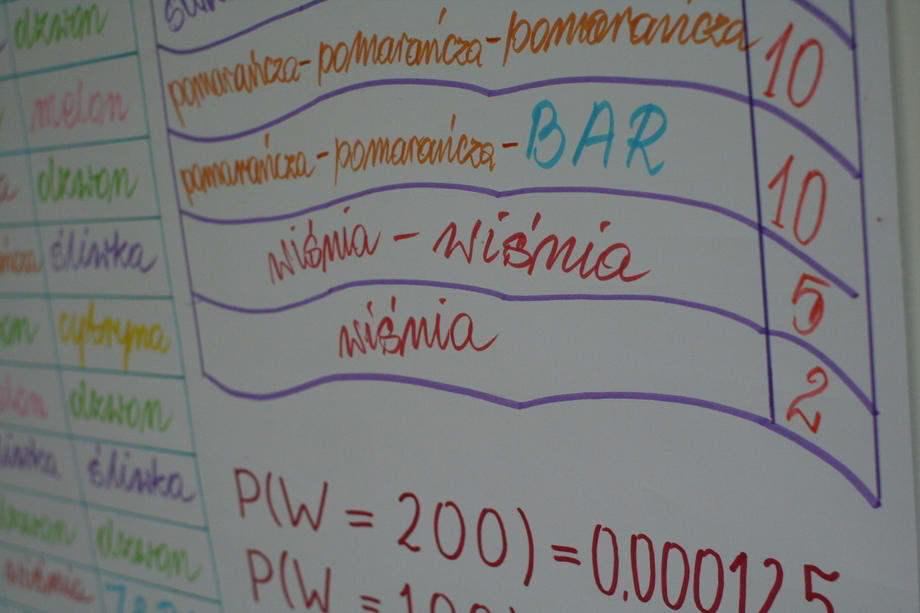 dzwon
melon
dzwon
śliwka
cytryna
dzwon
śliwka
dzwon
wiśnia
pomarańcza-pomarańcza-pomarańcza 10
pomarańcza-pomarańcza-BAR 10
wiśnia - wiśnia 5
wiśnia 2
P(W = 200) = 0.000125
P(W = 100)